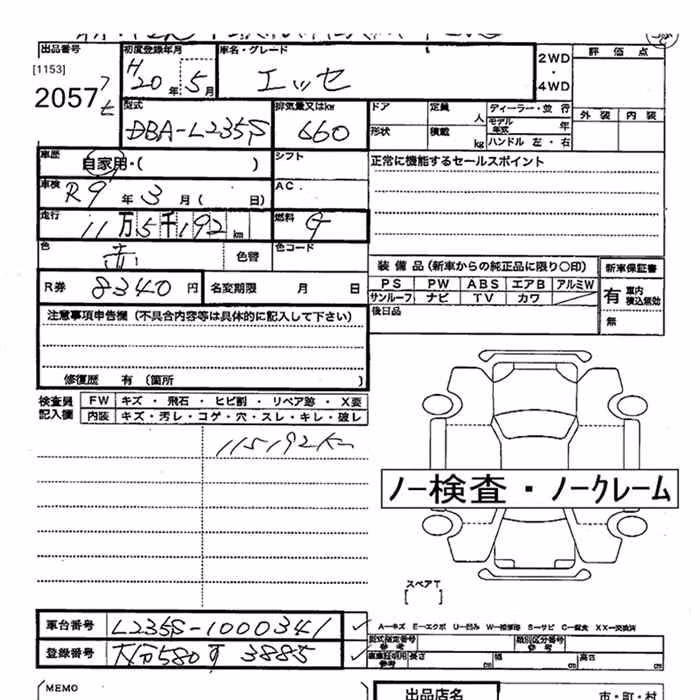 出品番号 初度登録年月 車名・グレード
[1153] H20年5月 エッセ 2WD・4WD 評価点
2057
外装 内装
型式 排気量又はkw ドア 定員 人 ディーラー・並行
DBA-L235S 660 モデル年式 年
形状 積載 kg ハンドル 左・右
車歴 自家用・( ) シフト 正常に機能するセールスポイント
車検 R9年3月( 日) AC.
走行 11万5千192km 燃料 G
色 赤 色替 色コード
装備品(新車からの純正品に限り〇印) 新車保証書
R券 8340円 名変期限 月 日
PS PW ABS エアB アルミW 有 車内積込無効
サンルーフ ナビ TV カワ
後日品 無
注意事項申告欄(不具合内容等は具体的に記入して下さい)
修復歴 有(箇所 )
検査員記入欄 FW キズ・飛石・ヒビ割・リペア跡・X要
内装 キズ・汚レ・コゲ・穴・スレ・キレ・破レ
115192km
ノー検査・ノークレーム
スペアT
[ ]
車台番号 L235S-1000341
A-キズ E-エクボ U-凹み W-補修跡 S-サビ C-腐食 XX-交換済
型式指定番号 参考 類別区分番号 参考
登録番号 580 3885
長さ cm 幅 cm 高さ cm
MEMO 出品店名 市・町・村